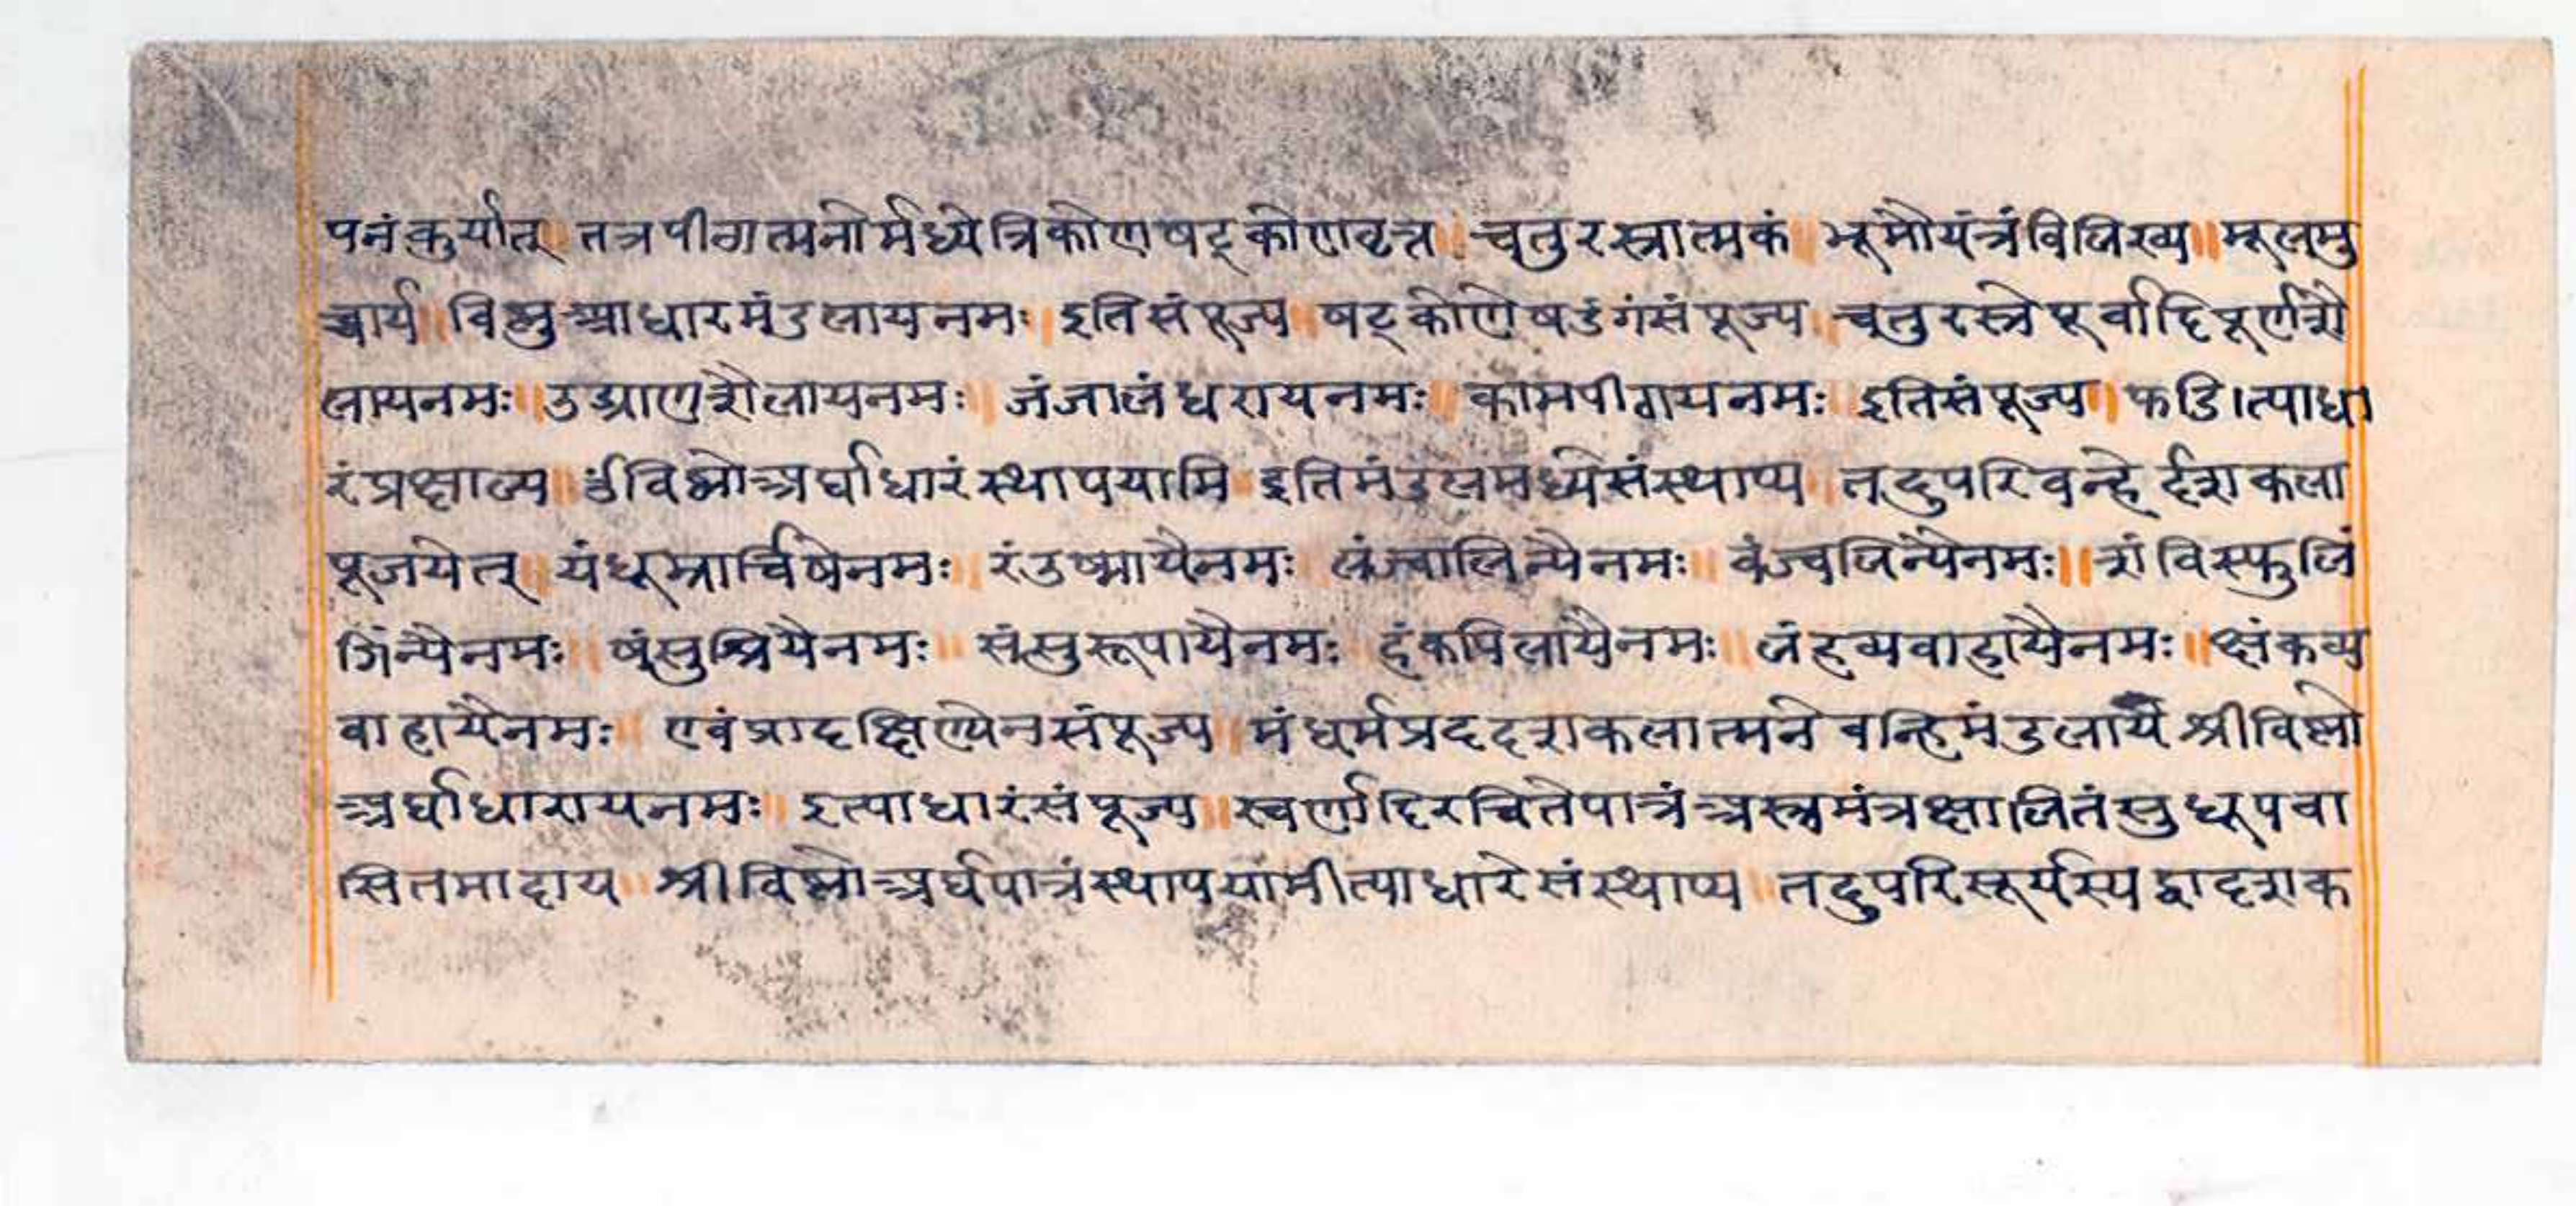 पनंकुर्यात् तत्रपीठात्मनोर्मध्येत्रिकोणषट्कोणवृत्त ॥ चतुरस्रात्मकं ॥ भूमौयंत्रंविलिख्य ॥ मूलमु
च्चार्य ॥ विष्णुआधारमंडलायनमः । इतिसंपूज्य ॥ षट्कोणेषडंगंसंपूज्य ॥ चतुरस्रेपूर्वादिपूर्णशै
लायनमः ॥ उड्याणशैलायनमः ॥ जंजालंधरायनमः ॥ कामपीठायनमः ॥ इतिसंपूज्य । फडि।त्याधा
रंप्रक्षाल्य ॥ विष्णोअर्घाधारंस्थापयामि ॥ इतिमंडलमध्येसंस्थाप्य ॥ तदुपरिवन्हेर्दशकला
पूजयेत् ॥ यंधूम्रार्चिषेनमः ॥ रंउष्मायैनमः ॥ लंज्वालिन्यैनमः ॥ वंज्वलिन्यैनमः ॥ शंविस्फुलिं
गिंन्यैनमः ॥ षंसुश्रियैनमः ॥ संसुरूपायैनमः ॥ हंकपिलायैनमः ॥ लंहव्यवाहायैनमः ॥ क्षंकव्य
वाहायैनमः ॥ एवंप्रादक्षिण्येनसंपूज्य ॥ मंधर्मप्रददशकलात्मनेवन्हिमंडलाय श्रीविष्णो
अर्घाधारायनमः ॥ इत्याधारंसंपूज्य ॥ स्वर्णादिरचितेपात्रंअस्त्रमंत्रक्षालितंसुधूपवा
सितमादाय ॥ श्रीविष्णोअर्घपात्रंस्थापयामीत्याधारेसंस्थाप्य ॥ तदुपरिसूर्यस्यद्वादशक